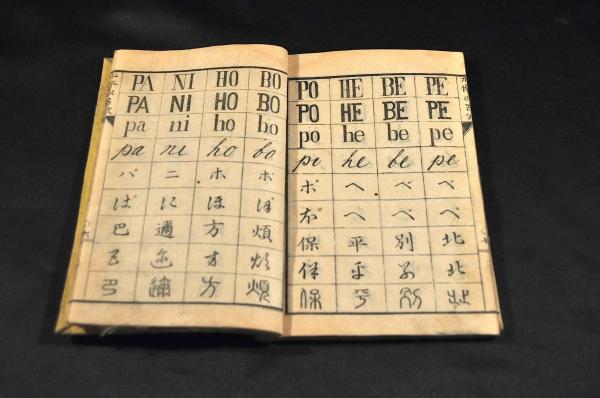 PA NI HO BO
PA NI HO BO
pa ni ho bo
pa ni ho bo
パ ニ ホ ボ
ぱ に ほ ぼ
巴 邇 方 煩
PO HE BE PE
PO HE BE PE
po he be pe
po he be pe
ポ ヘ ベ ペ
ぽ へ べ ぺ
保 平 別 北
保 平 別 北
保 平 別 北